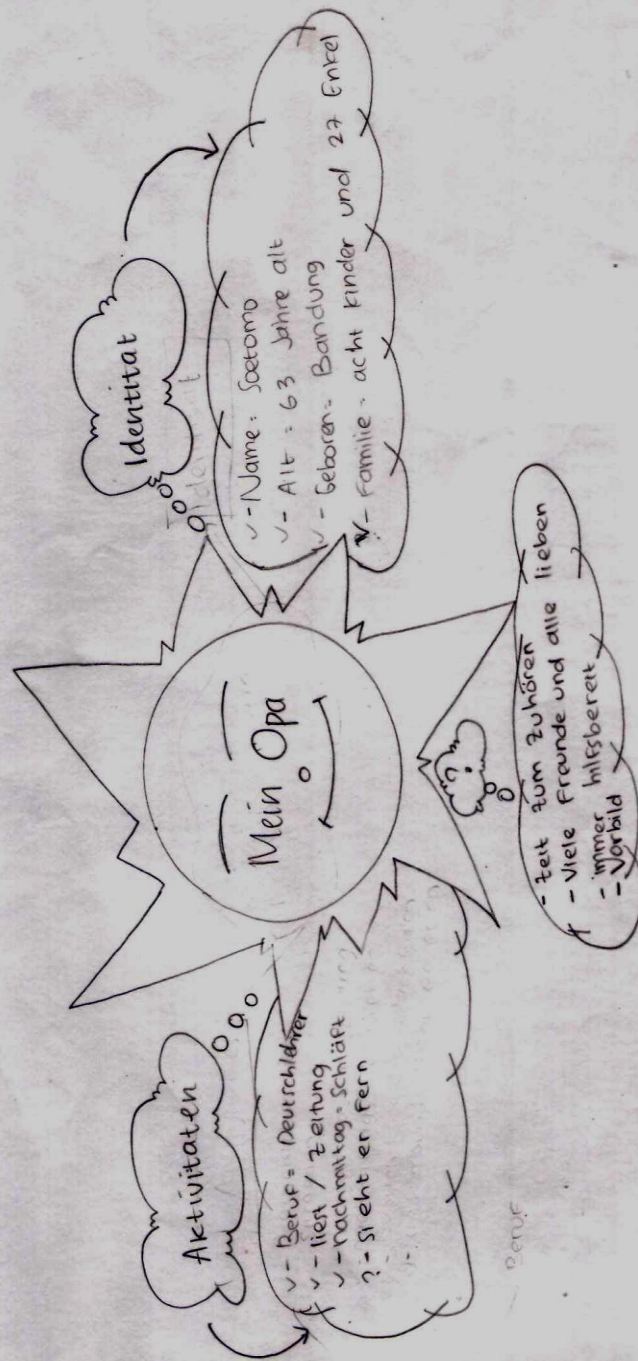 Mein Opa
Identität
✓ - Name = Soetomo
✓ - Alt = 63 Jahre alt
✓ - Geboren = Bandung
✓ - Familie = acht kinder und 27 Enkel
Aktivitäten
✓ - Beruf = Deutschlehrer
✓ - liest / Zeitung
✓ - nachmittag = schläft
? - sieht er Fern
?
- Zeit zum zuhören
- Viele Freunde und alle lieben
- immer hilfsbereit
- Vorbild
Beruf